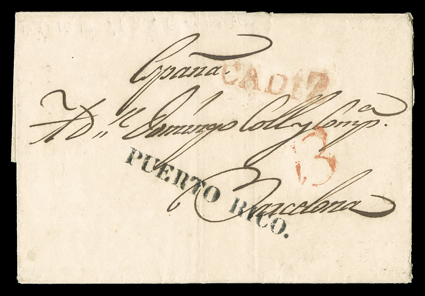 España
CADIZ
A Dn Domingo Coll y Compa.
3
PUERTO RICO.
Barcelona